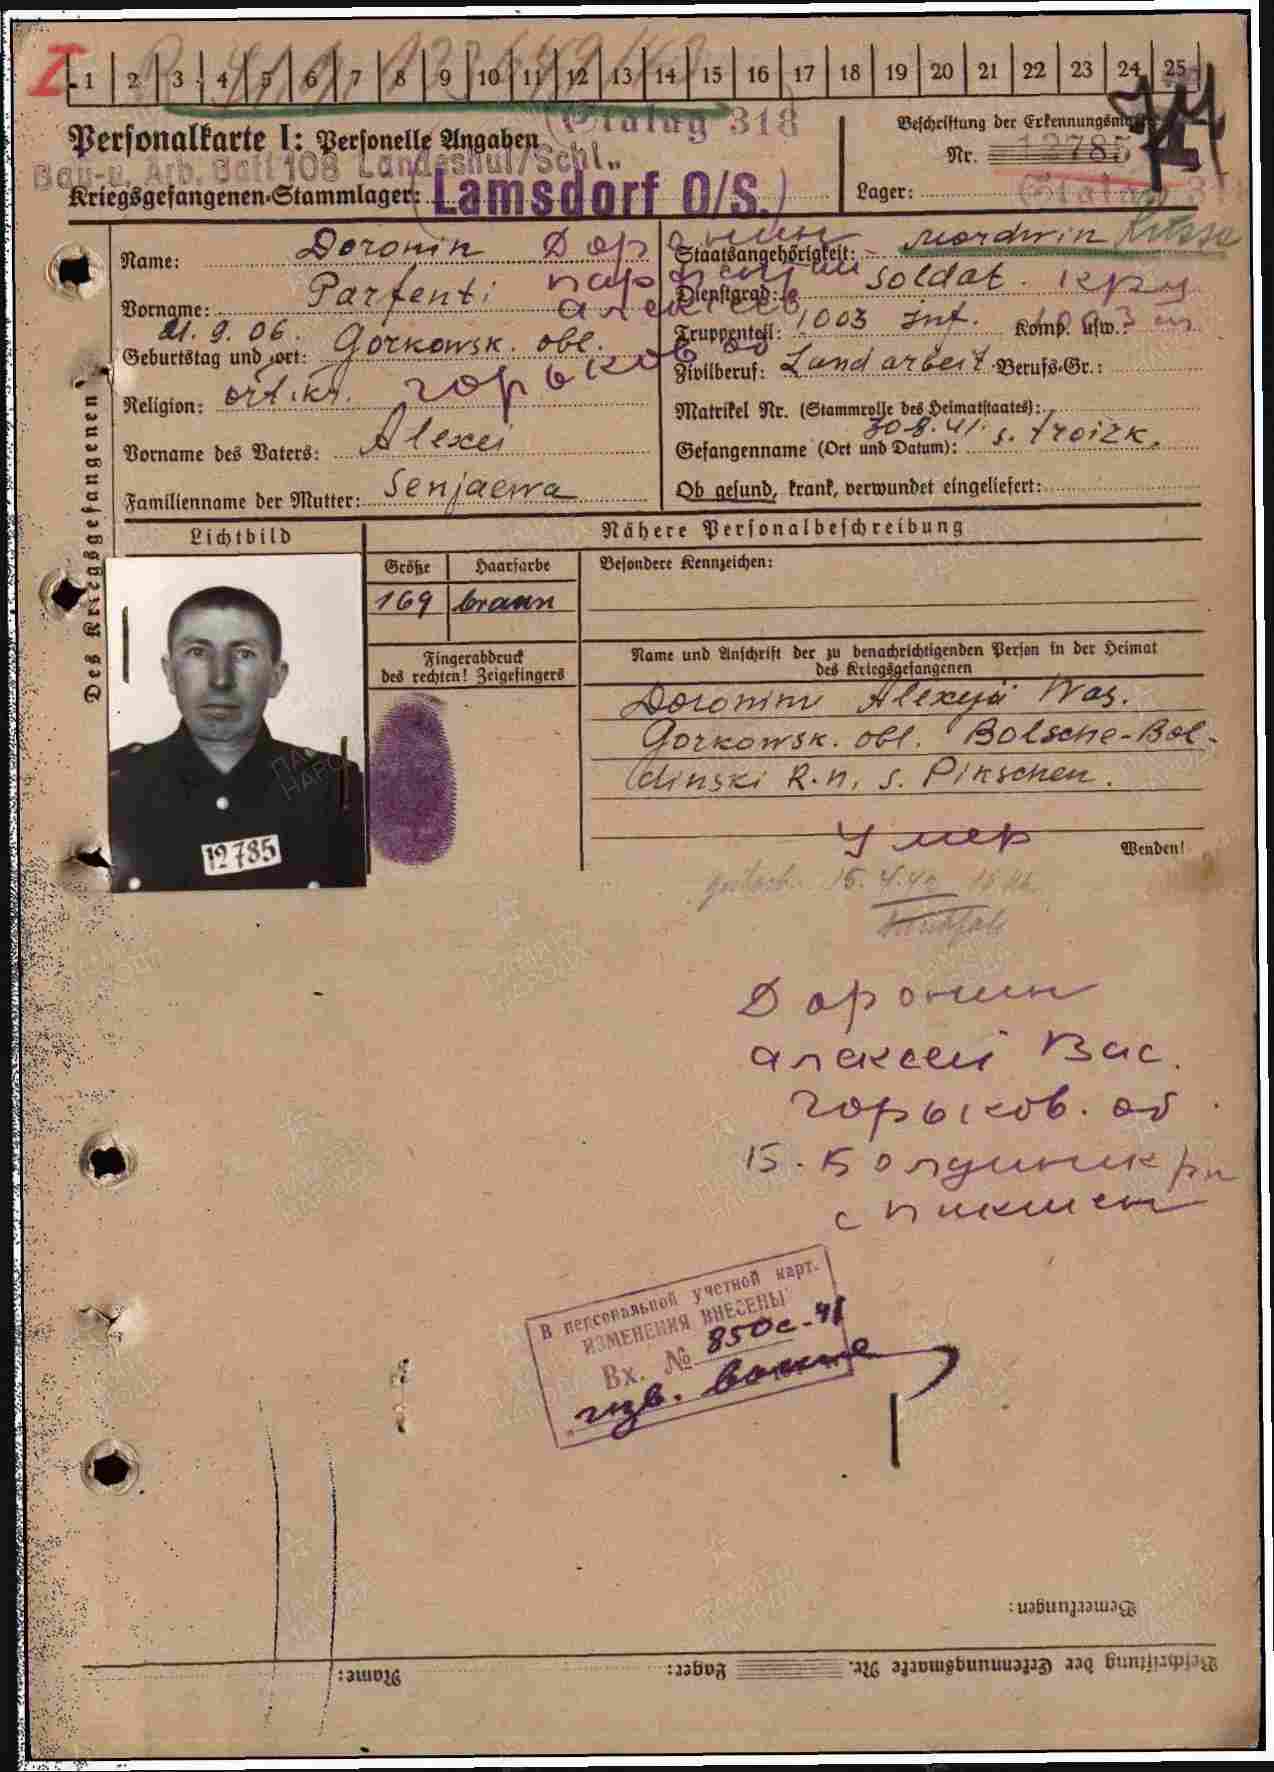 I
1 2 3 4 5 6 7 8 9 10 11 12 13 14 15 16 17 18 19 20 21 22 23 24 25
(Stalag 318)
Personalkarte I: Personelle Angaben
Beschriftung der Erkennungsmarke
Nr. 12785
Bau-u. Arb. Batl 108 Landeshut/Schl.
Kriegsgefangenen-Stammlager: Lamsdorf O/S.)
Lager: (Stalag 318
Des Kriegsgefangenen
Name: Doronin Доронин
Staatsangehörigkeit: Mordwin Russe
Vorname: Parfenti Парфентий
Dienstgrad: Soldat. кр
Алексеев
Truppenteil: 1003 Inf. Komp. usw.:
Geburtstag und -ort: 21.9.06. Gorkowsk. obl.
Горьков об
Zivilberuf: Landarbeit. Berufs-Gr.:
Religion: ort.kr.
Matrikel Nr. (Stammrolle des Heimatstaates):
Vorname des Vaters: Alexei
Gefangennahme (Ort und Datum): 30.8.41. s. Troizk.
Familienname der Mutter: Senjaewa
Ob gesund, krank, verwundet eingeliefert:
Lichtbild
Nähere Personalbeschreibung
Größe Haarfarbe
Besondere Kennzeichen:
169 braun
Fingerabdruck
des rechten! Zeigefingers
Name und Anschrift der zu benachrichtigenden Person in der Heimat
des Kriegsgefangenen
Doronin Alexejä Was.
Gorkowsk. obl. Bolsche-Bol-
dinski R-n, s. Pikschen.
12785
Умер
Wenden!
gestorb. 15.4.42
Доронин
Алексей Вас.
Горьков. об.
Б. Болдиник рн
с Пикшен
В персональной учетной карт.
ИЗМЕНЕНИЯ ВНЕСЕНЫ
Вх. № 850с-41
Bemerkungen:
Name: Lager: Beschriftung der Erkennungsmarke Nr.